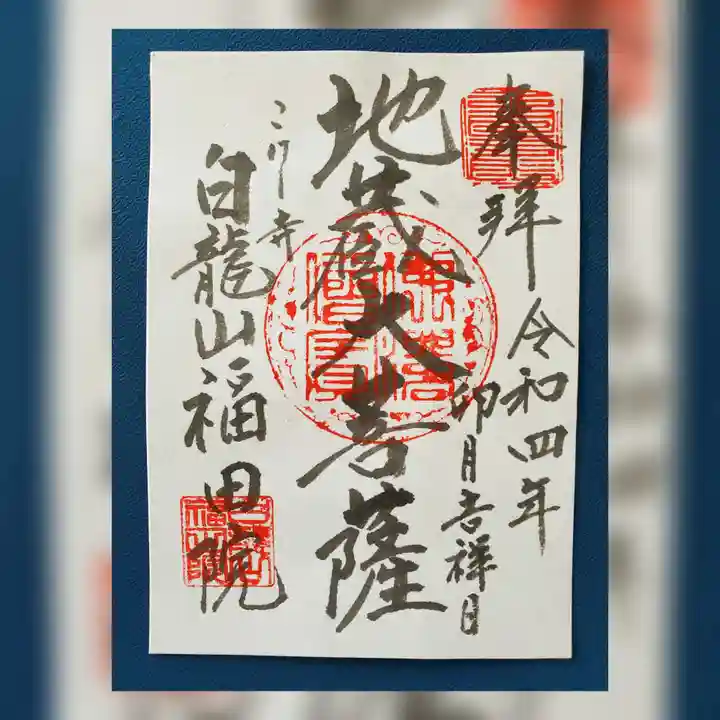 奉拝
令和四年
卯月吉祥日
地蔵大菩薩
白龍山福田院